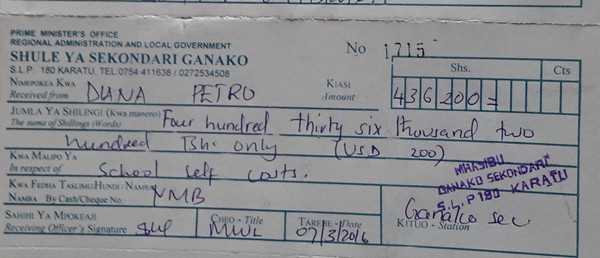 PRIME MINISTER'S OFFICE
REGIONAL ADMINISTRATION AND LOCAL GOVERNMENT
SHULE YA SEKONDARI GANAKO
S.L.P. 180 KARATU. TEL.0754 411638 / 0272534508
No 1715
Shs. Cts
NIMEPOKEA KWA
Received from DUNA PETRO
KIASI
Amount 436200=
JUMLA YA SHILINGI (Kwa maneno) Four hundred thirty six thousand two
The sums of Shillings (Words)
hundred Tsh. only (USD 200)
KWA MALIPO YA
In respect of School self costs.
KWA FEDHA TASLIMU/HUNDI - NAMBA
NAMBA By Cash/Cheque No. NMB
MHASIBU
GANAKO SEKONDARI
S.L.P 180 KARATU
Ganako sec
KITUO - Station
SAHIHI YA MPOKEAJI
Receiving Officer's Signature
CHEO - Title
MWL
TAREHE - Date
07/3/2016